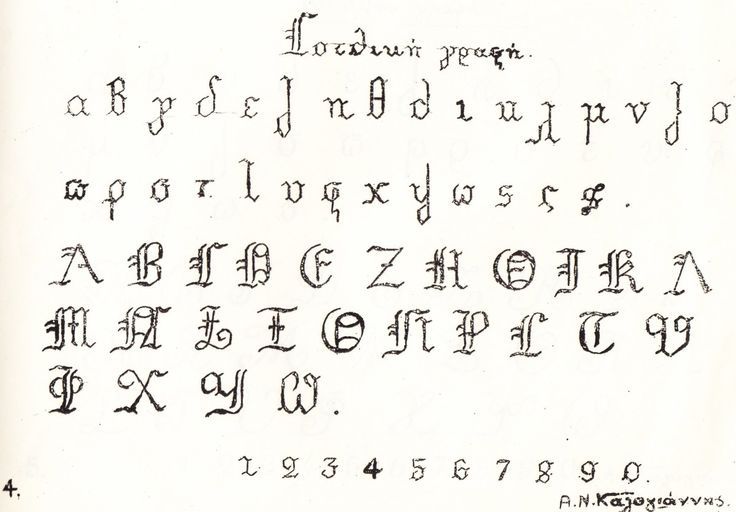 Γοτθική γραφή.
α β γ δ ε ζ η θ ϑ ι κ λ μ ν ξ ο
π ρ σ τ τ υ φ χ ψ ω ς ς φ .
Α Β Γ Δ Ε Ζ Η Θ Ι Κ Λ
Μ Ν Ξ Ξ Ο Π Ρ Σ Τ Υ
Φ Χ Ψ Ω .
1 2 3 4 5 6 7 8 9 0 .
4.
Α.Ν.Καλογιάννης.